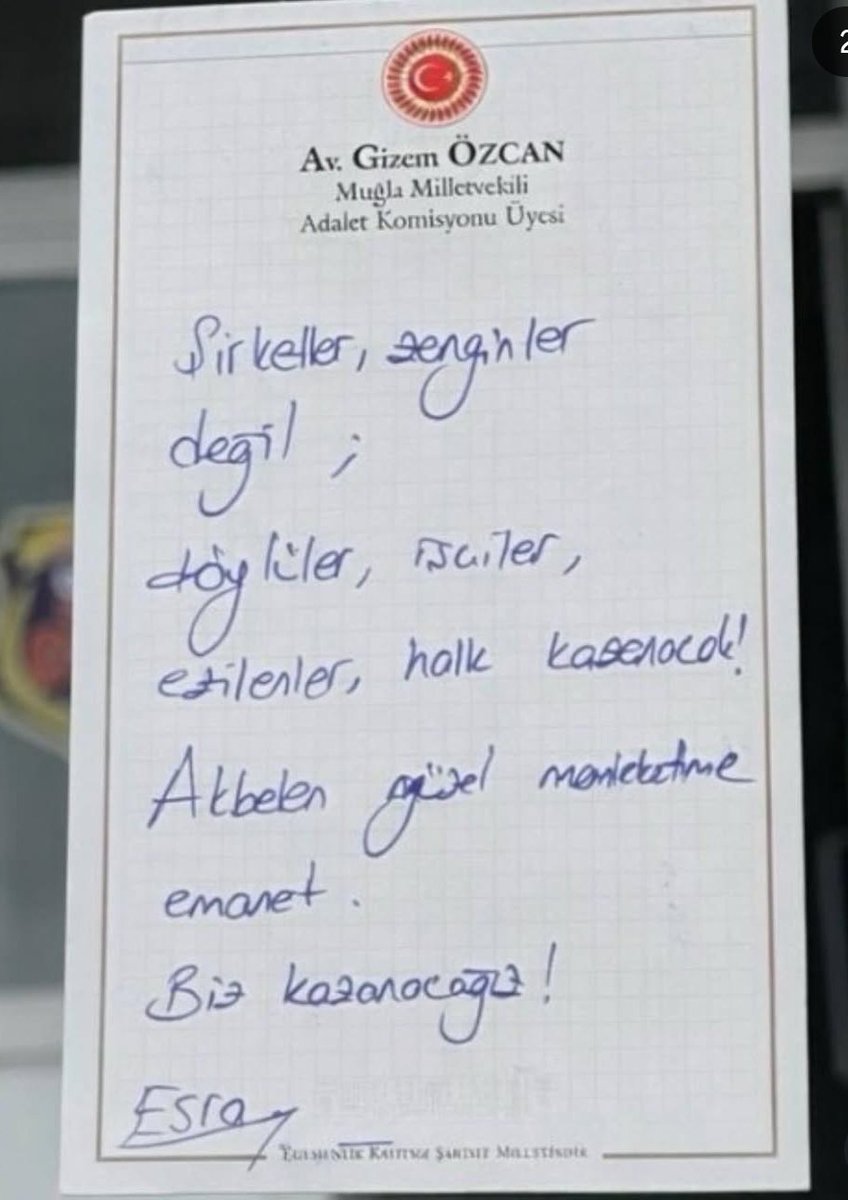 2
Av. Gizem ÖZCAN
Muğla Milletvekili
Adalet Komisyonu Üyesi
Şirketler, zenginler
değil ;
köylüler, işçiler,
ezilenler, halk kazanacak!
Akbelen güzel memleketime
emanet .
Biz kazanacağız!
Esra
EGEMENLİK KAYITSIZ ŞARTSIZ MİLLETİNDİR